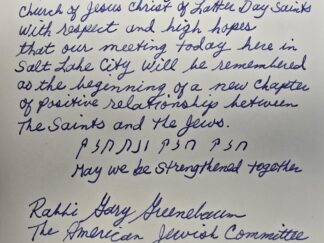 Church of Jesus Christ of Latter Day Saints
with respect and high hopes
that our meeting today here in
Salt Lake City will be remembered
as the beginning of a new chapter
of positive relationship between
The Saints and the Jews.
חזק חזק ונתחזק
May we be strengthened together
Rabbi Gary Greenebaum
The American Jewish Committee